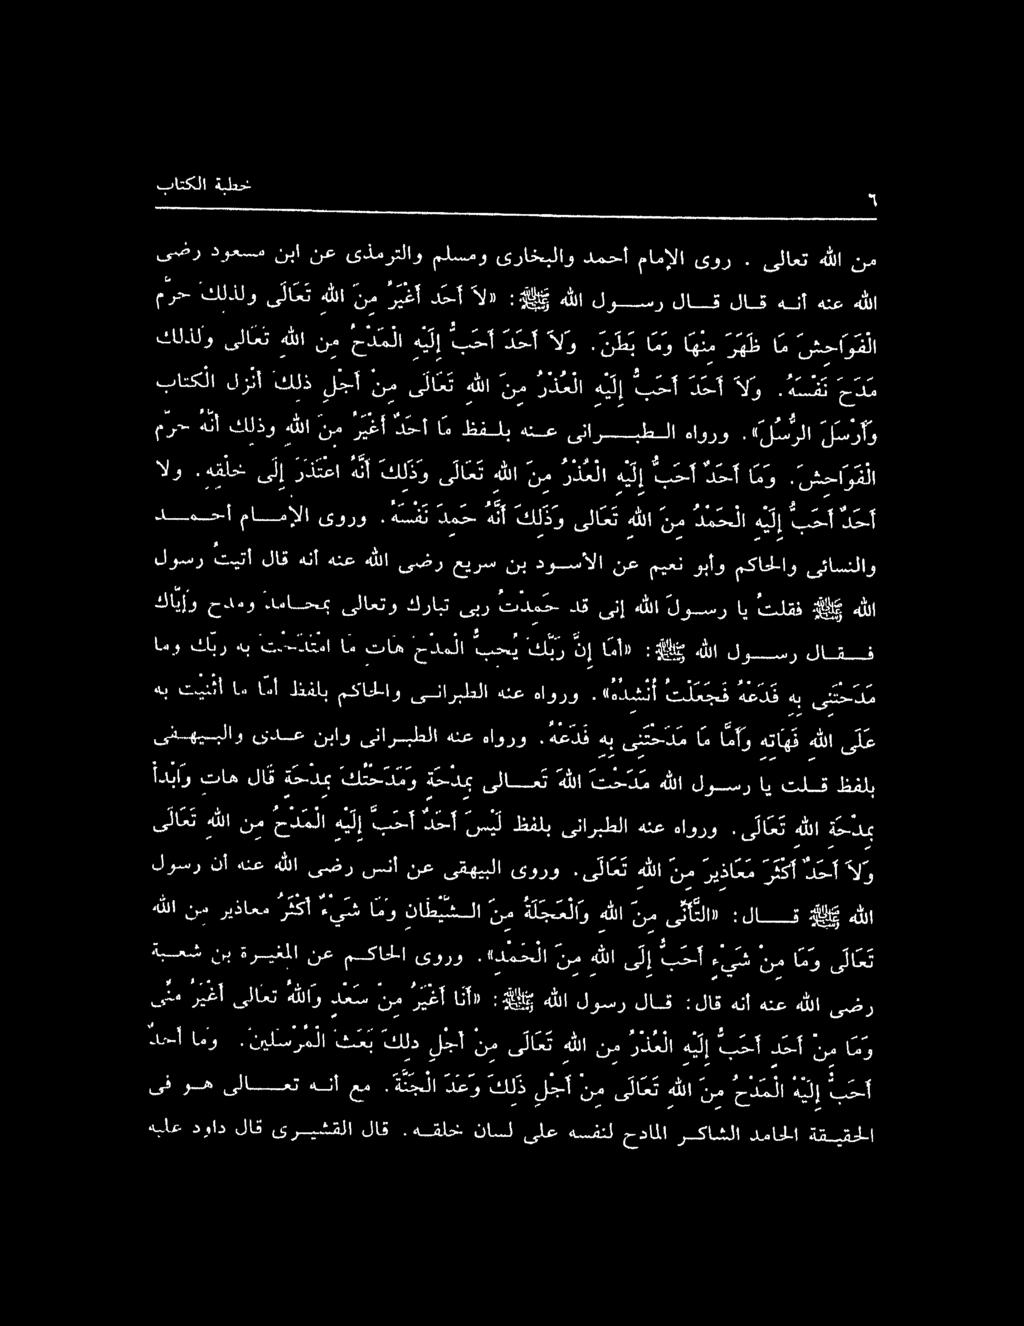 خطبة الكتاب
٦
من الله تعالى . روى الإمام أحمد والبخارى ومسلم والترمذى عن ابن مسعود رضى
الله عنه أنه قال قال رسول الله ﷺ: «لاَ أَحَدَ أَغْيَرُ مِنَ اللهِ تَعَالَى ولذلكَ حرَّم
الْفَوَاحِشَ مَا ظَهَرَ مِنْهَا وَمَا بَطَنَ. وَلاَ أَحَدَ أَحَبُّ إِلَيْهِ الْمَدْحُ مِن اللهِ تعالى ولذلك
مَدَحَ نَفْسَهُ. وَلاَ أَحَدَ أَحَبُّ إِلَيْهِ الْعُذْرُ مِنَ اللهِ تَعَالَى مِنْ أَجْلِ ذلِكَ أنْزل الْكتاب
وَأَرْسَلَ الرُّسُلَ». ورواه الطبرانى عنه بلفظ مَا أحَدٌ أَغْيَرُ مِنَ اللهِ وذلك أنَّهُ حرَّم
الْفَوَاحِشَ. وَمَا أَحَدٌ أَحَبُّ إِلَيْهِ الْعُذْرُ مِنَ اللهِ تَعَالَى وَذَلِكَ أَنَّهُ اعْتَذَرَ إِلَى خلْقِهِ. ولا
أَحَدٌ أَحَبُّ إِلَيْهِ الْحَمْدُ مِنَ اللهِ تَعَالى وَذَلِكَ أَنَّهُ حَمِدَ نَفْسَهُ. وروى الإمام أحمد
والنسائى والحاكم وأبو نعيم عن الأسود بن سريع رضى الله عنه أنه قال أتيتُ رسول
الله ﷺ فقلتُ يا رسولَ الله إنى قد حَمِدْتُ ربى تبارك وتعالى بمحامدَ ومدح وإيَّاك
فقال رسول الله ﷺ: «أمَا إِنَّ رَبَّكَ يُحِبُّ الْمدْحَ هَاتِ مَا امْتَدَحْتَ به ربَّك وما
مَدَحْتَنِى بِهِ فَدَعْهُ فَجَعَلْتُ أُنْشِدُهُ». ورواه عنه الطبرانى والحاكم بلفظ أمَّا ما أثْنيْت به
عَلَى اللهِ فَهَاتِهِ وَأَمَّا مَا مَدَحْتَنِى بِهِ فَدَعْهُ. ورواه عنه الطبرانى وابن عدى والبيهقى
بلفظ قلت يا رسول الله مَدَحْتَ اللهَ تَعالى بِمِدْحَةٍ وَمَدَحْتُكَ بِمِدْحَةٍ قَال هات وَابْدأْ
بِمِدْحَةِ اللهِ تَعَالَى. ورواه عنه الطبرانى بلفظ لَيْسَ أَحَدٌ أَحَبَّ إِلَيْهِ الْمَدْحُ مِن اللهِ تَعَالَى
وَلاَ أَحَدٌ أَكْثَرَ مَعَاذِيرَ مِنَ اللهِ تَعَالَى. وروى البيهقى عن أنس رضى الله عنه أن رسول
الله ﷺ قال: «التَّأَنِّى مِنَ اللهِ وَالْعَجَلَةُ مِنَ الشَّيْطَانِ وَمَا شَيْءٌ أَكْثَرُ معاذير مِن الله
تَعَالَى وَمَا مِنْ شَيْءٍ أَحَبُّ إِلَى اللهِ مِنَ الْحَمْدِ». وروى الحاكم عن المغيرة بن شعبة
رضى الله عنه أنه قال: قال رسول الله ﷺ: «أَنَا أَغْيَرُ مِنْ سَعْدٍ وَاللهُ تعالى أَغْيَرُ منِّى
وَمَا مِنْ أَحَدٍ أَحَبُّ إِلَيْهِ الْعُذْرُ مِن اللهِ تَعَالَى مِنْ أَجْلِ ذلِكَ بَعَثَ الْمُرْسَلِينَ. وما أحدٌ
أَحَبُّ إِلَيْهِ الْمَدْحُ مِنَ اللهِ تَعَالَى مِنْ أَجْلِ ذَلِكَ وَعَدَ الْجَنَّةَ. مع أنه تعالى هو فى
الحقيقة الحامد الشاكر المادح لنفسه على لسان خلقه. قال القشيرى قال داود عليه